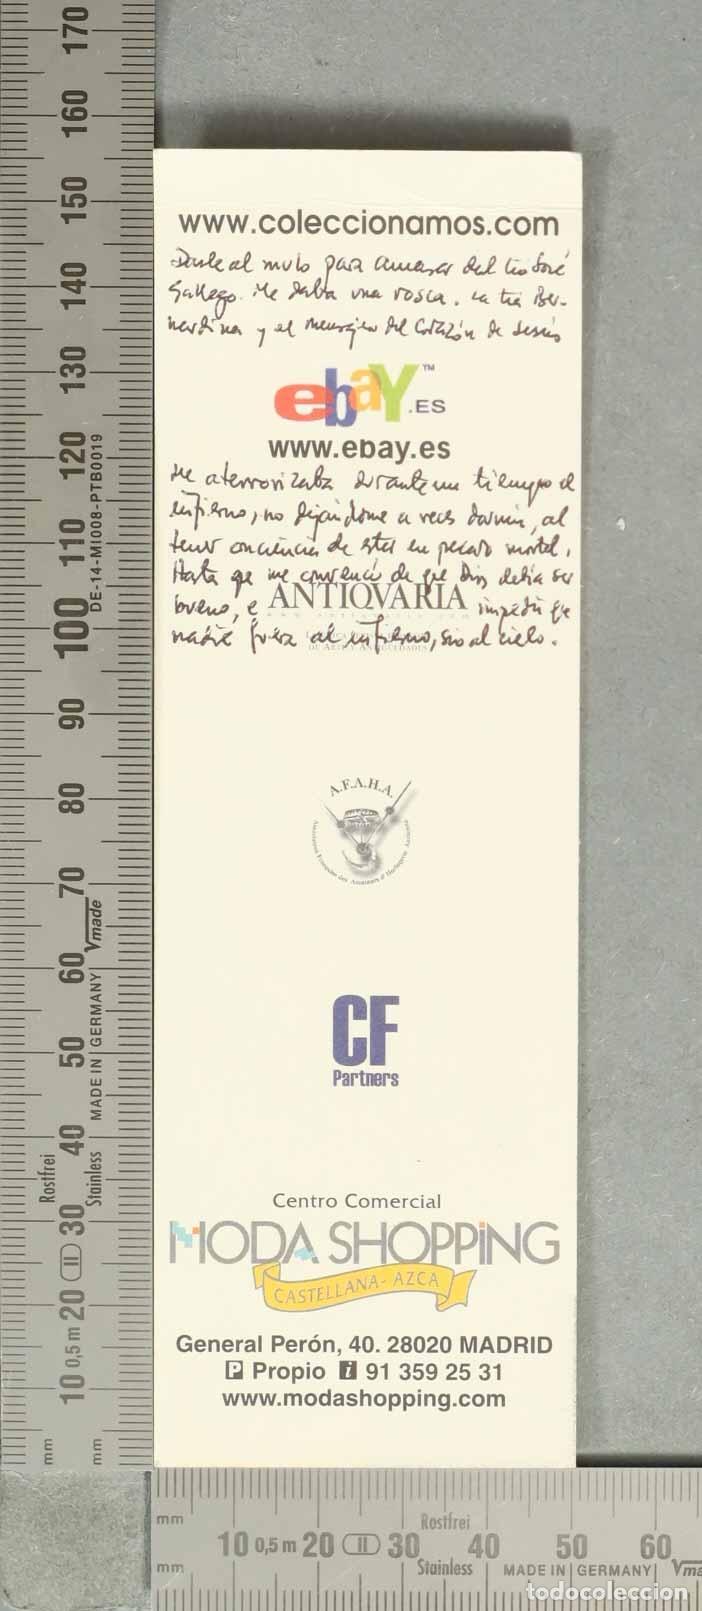 www.coleccionamos.com
Darle al mulo para amasar del tío José
Gallego. Me daba una rosca. La tía Ber-
nardina y el mensajero del Corazón de Jesús
ebay™.ES
www.ebay.es
Me aterrorizaba durante un tiempo el
infierno, no dejándome a veces dormir, al
tener conciencia de estar en pecado mortal.
Hasta qe me convencí de qe Dios debía ser
bueno, e
ANTIQVARIA
impedir qe
nadie fuera al infierno, sino al cielo.
DE ARTE Y ANTIGÜEDADES
A.F.A.H.A.
Association Française des Amateurs d'Horlogerie Ancienne
CF
Partners
Centro Comercial
MODA SHOPPING
CASTELLANA-AZCA
General Perón, 40. 28020 MADRID
P Propio i 91 359 25 31
www.modashopping.com
170
160
150
140
130
120
110
100
90
80
70
60
50
40
30
20
10 0,5 m
DE-14-MI008-PTB0019
Vmade
MADE IN GERMANY
Rostfrei
Stainless
II
mm
mm
mm
10 0,5 m 20 II 30 40 50 60
Rostfrei
Stainless
MADE IN GERMANY
mm
todocoleccion